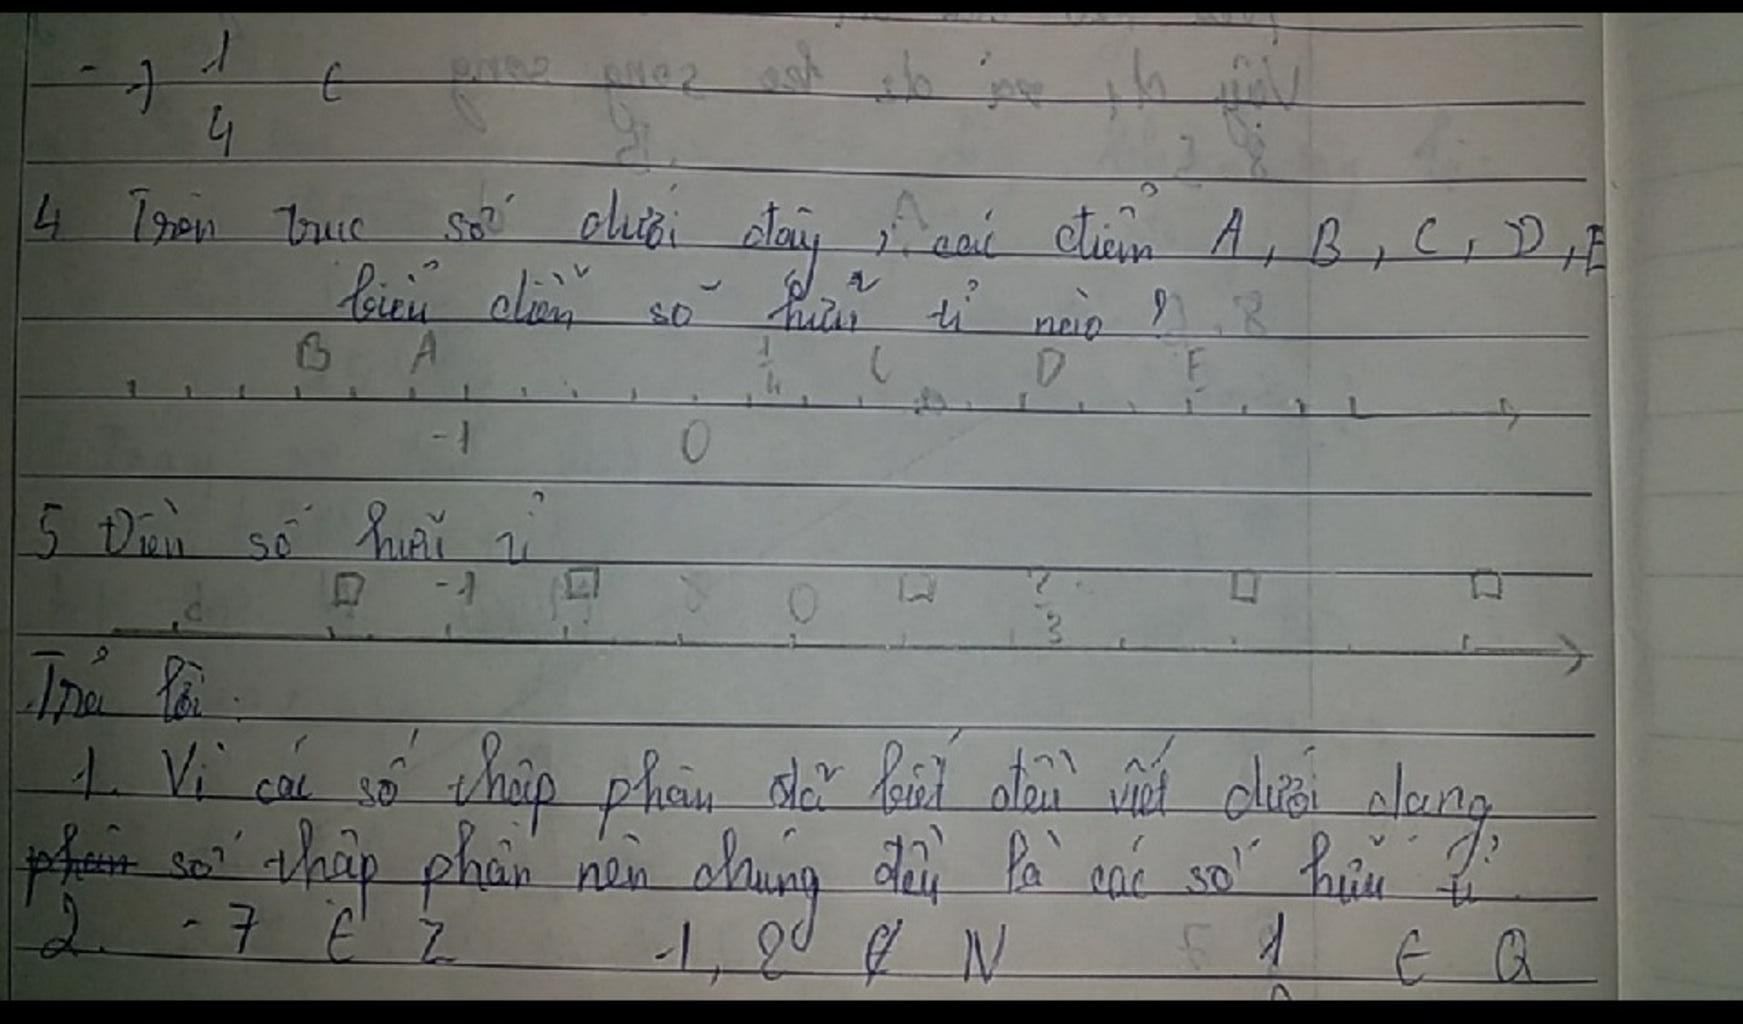 -) 1/4 ∈
4 Trên trục số dưới đây, các điểm A, B, C, D, E
biểu diễn số hữu tỉ nào?
B A 1/4 C D E
-1 0
5 Điền số hữu tỉ
□ -1 □ 0 □ 2/3 □ □
Trả lời:
1. Vì các số thập phân đã biết đều viết dưới dạng
số thập phân nên chúng đều là các số hữu tỉ
2. -7 ∈ Z -1, 8 ∉ N 1 ∈ Q